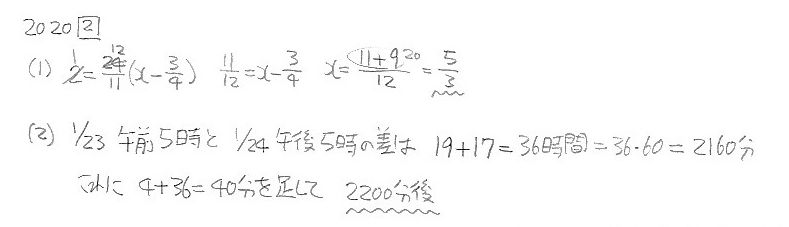 2020 [2]
(1) 2 1 = 24 12/11 (x - 3/4) 11/12 = x - 3/4 x = 11+9 20/12 = 5/3
(2) 1/23 午前5時と 1/24 午後5時の差は 19+17=36時間=36・60=2160分
これに 4+36=40分を足して 2200分後